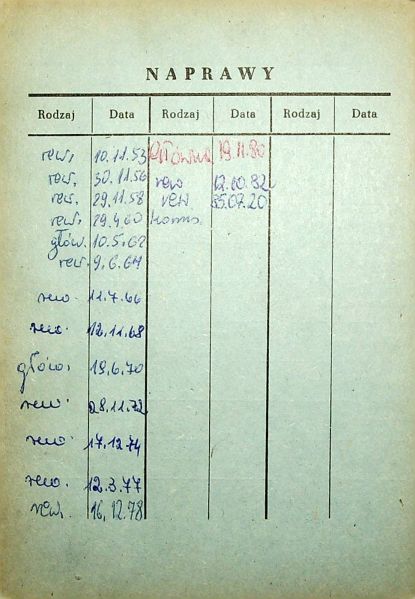 NAPRAWY
Rodzaj Data Rodzaj Data Rodzaj Data
rew. 10.11.53 główna 19.11.80
rew. 30.11.56 rew 12.10.82
rew. 29.11.58 rew 85.07.20
rew. 29.4.60
głów. 10.5.62
rew. 9.6.64
rew. 11.7.66
rew. 12.11.68
głów. 19.6.70
rew. 28.11.72
rew. 17.12.74
rew. 12.3.77
rew. 16.12.78